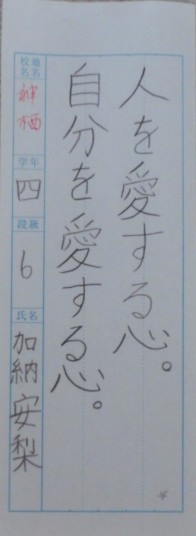 人を愛する心。
自分を愛する心。
校地
名名
神栖
学年
四
段級
6
氏名
加納安梨